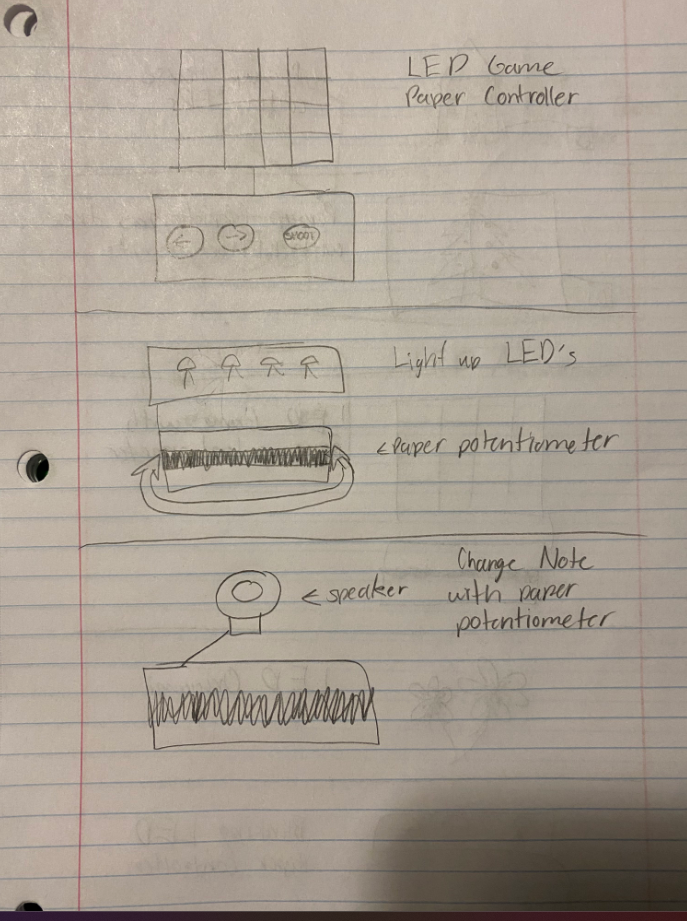 LED Game
Paper Controller
← → SHOOT
Light up LED's
<Paper potentiometer
Change Note
< speaker with paper
potentiometer